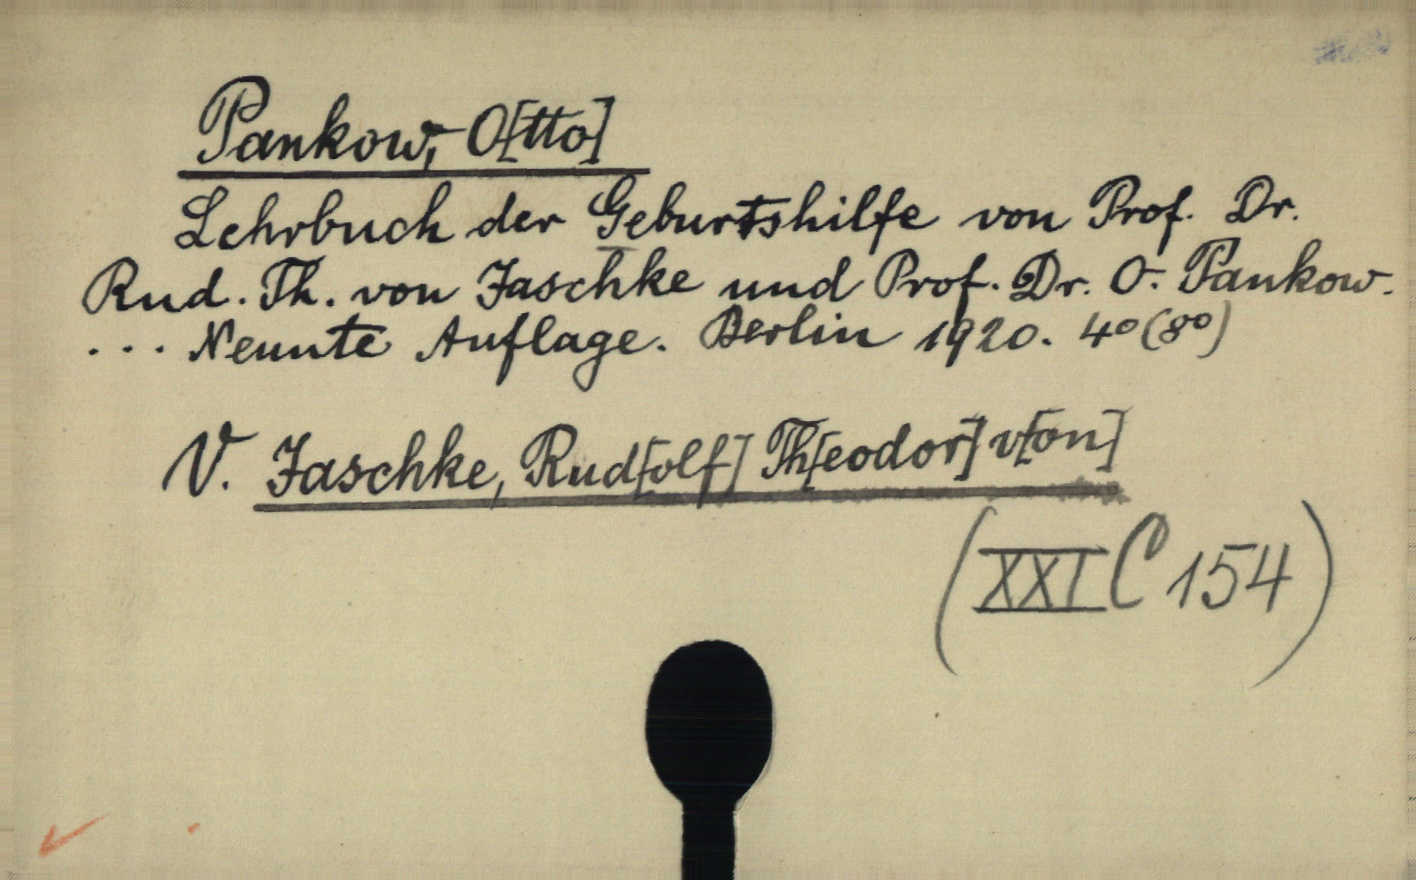 Pankow, O[tto]
Lehrbuch der Geburtshilfe von Prof. Dr.
Rud. Th. von Jaschke und Prof. Dr. O. Pankow.
... Neunte Auflage. Berlin 1920. 4° (8°)
V. Jaschke, Rud[olf] Th[eodor] v[on]
(XXI C 154)